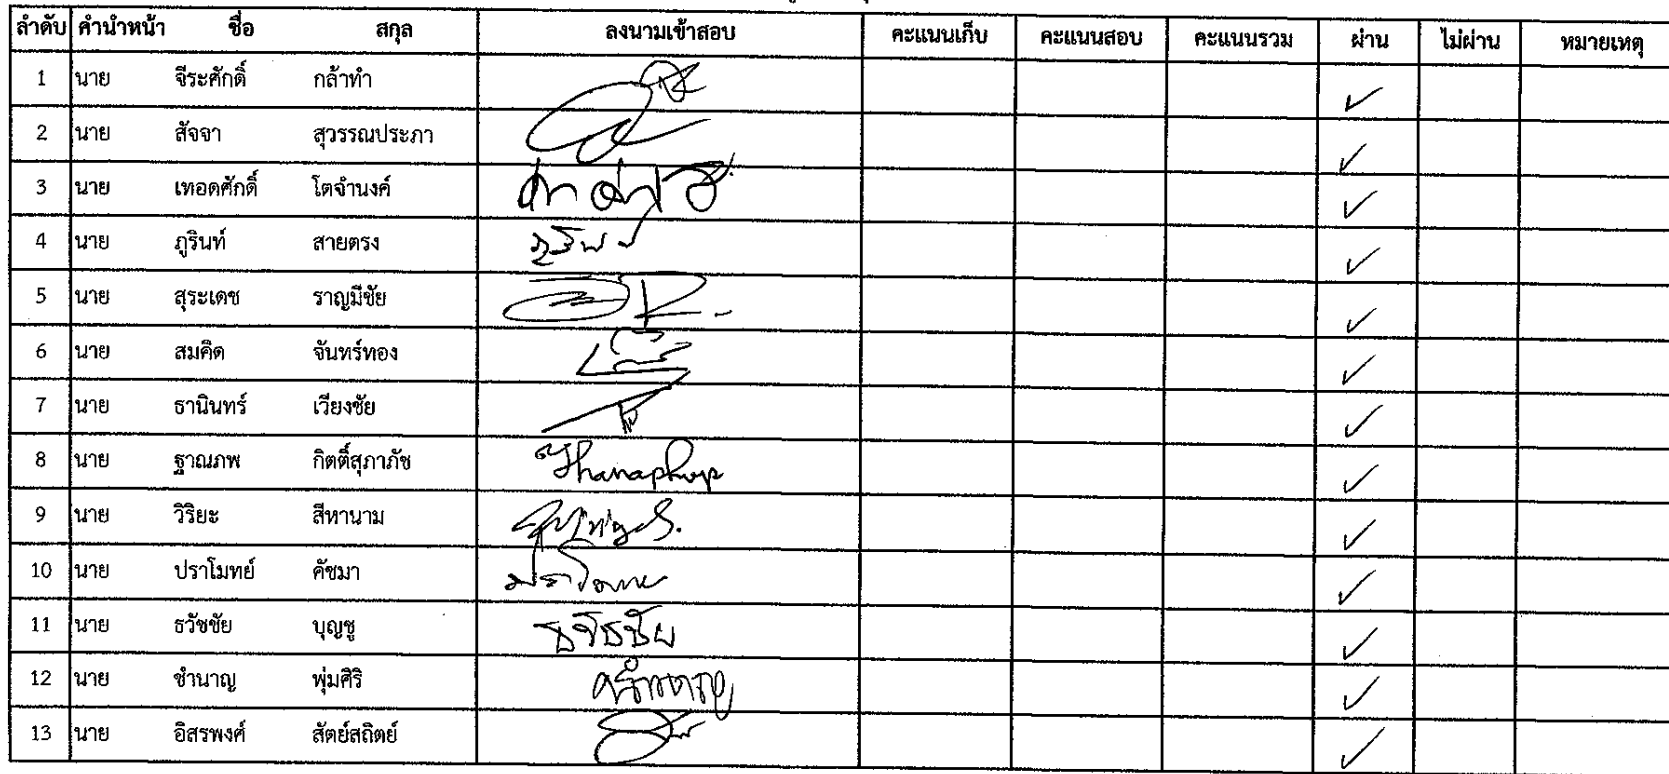 ลำดับ คำนำหน้า ชื่อ สกุล ลงนามเข้าสอบ คะแนนเก็บ คะแนนสอบ คะแนนรวม ผ่าน ไม่ผ่าน หมายเหตุ
1 นาย จีระศักดิ์ กล้าทำ ✓
2 นาย สัจจา สุวรรณประภา ✓
3 นาย เทอดศักดิ์ โตจำนงค์ ✓
4 นาย ภูรินท์ สายตรง ภูรินท์ ✓
5 นาย สุระเดช ราญมีชัย ✓
6 นาย สมคิด จันทร์ทอง ✓
7 นาย ธานินทร์ เวียงชัย ✓
8 นาย ฐาณภพ กิตติ์สุภาภัช Thanaphop ✓
9 นาย วิริยะ สีหานาม ✓
10 นาย ปราโมทย์ คัชมา ปราโมทย์ ✓
11 นาย ธวัชชัย บุญชู ธวัชชัย ✓
12 นาย ชำนาญ พุ่มศิริ ชำนาญ ✓
13 นาย อิสรพงศ์ สัตย์สถิตย์ ✓